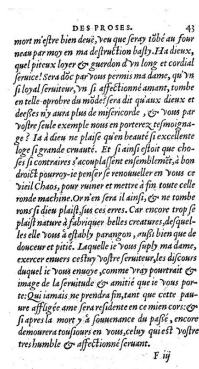 DES PROSES. 43
mort m'estre bien deuë, veu que seray tõbé au four
neau par moy en ma destruction basty. Ha dieux,
quel piteux loyer & guerdon d'vn long et cordial
seruice! Sera dõc par vous permis ma dame, qu'vn
si loyal seruiteur, vn si affectionné amant, tombe
en telle opprobre du mõde? sera dit qu'aux dieux et
deesses n'y aura plus de misericorde, & vous par
vostre seule exemple nous en porterez tesmoigna-
ge? Ia à dieu ne plaise qu'en beauté si excellente
loge si grande cruauté. Et si ainsi estoit que cho-
ses si contraires s'acouplassent ensemblemẽt, à bon
droict pourroy-ie penser se renouueller en vous ce
vieil Chaos, pour ruiner et mettre à fin toute celle
ronde machine. Or n'en sera il ainsi, & ne tombe
rons si dieu plaist, sus ces erres. Car encore trop se
plaist nature à fabriquer belles creatures, desquel-
les elle vous à estably parangon, aussi bien que de
douceur et pitié. Laquelle ie vous supply ma dame,
exercer enuers cestuy vostre seruiteur, les discours
duquel ie vous enuoye, comme vray pourtrait &
image de la seruitude & amitié que ie vous por-
te: Qui iamais ne prendra fin, tant que ceste pau-
ure affligée ame sera residente en ce mien cors: &
si apres la mort y à souuenance du passé, encore
demourera tousiours en vous, celuy qui est vostre
tres humble & affectionné seruant.
F iij